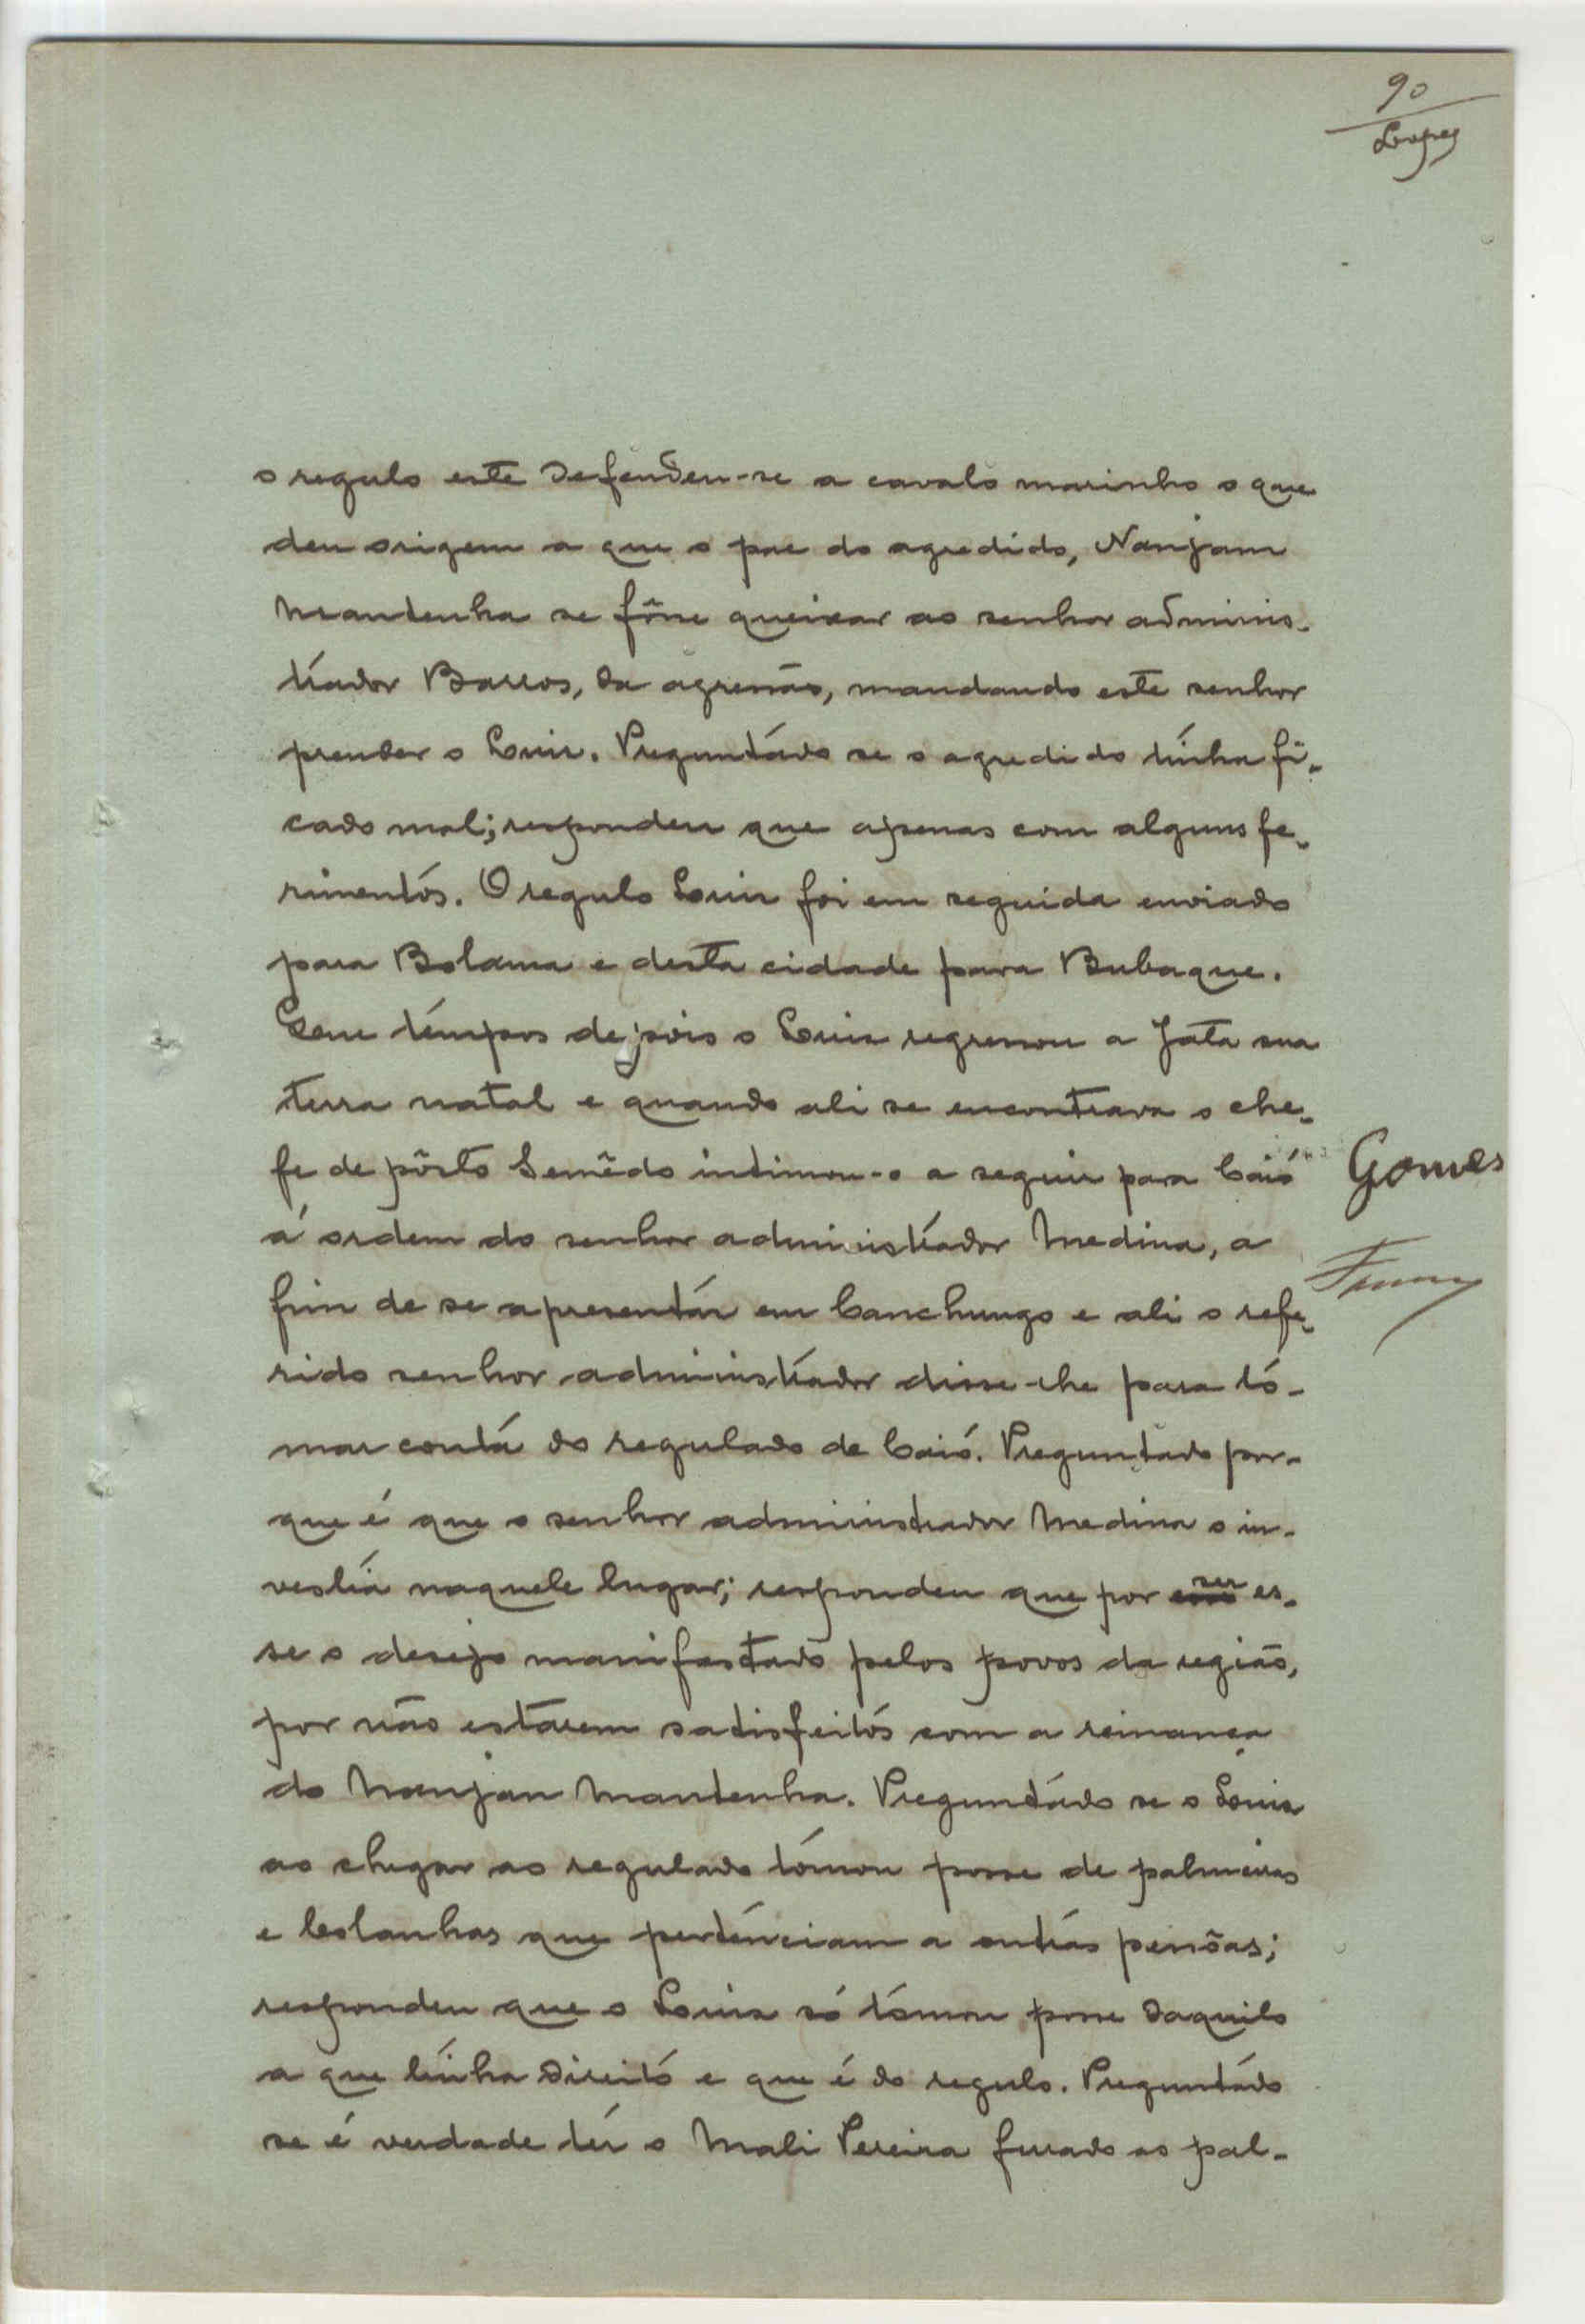 90
Lopes
o regulo este defendeu-se a cavalo marinho o que
deu origem a que o pae do agredido, Nanjam
Mantenha se fôsse queixar ao senhor adminis-
trador Barros, da agressão, mandando este senhor
prender o Luis. Preguntádo se o agredido tinha fi-
cado mal; respondeu que apenas com alguns fe-
rimentós. O regulo Luis foi em seguida enviado
para Bolama e desta cidade para Bubaque.
tempos depois o Luis regressou a Jata sua
terra natal e quando ali se encontrava o che-
fe de pôsto Semêdo intimou-o a seguir para Caió
á ordem do senhor administrador Medina, a
fim de se apresentár em Canchungo e ali o refe-
rido senhor administrador disse-lhe para tó-
mar contá do regulado de Caió. Preguntado por-
que é que o senhor administrador Medina o in-
vestiá naquele lugar; respondeu que por ser es-
se o desejo manifestado pelos povos da região,
por não estárem satisfeitós com a reinança
do Nanjan Mantenha. Preguntádo se o Luis
ao chegar ao regulado tómou posse de palmeiras
e bolanhas que perténciam a outrás pessôas;
respondeu que o Luis só tómou posse daquilo
a que tinha direitó e que é do regulo. Preguntádo
se é verdade tér o Mali Pereira furado as pal-
Gomes